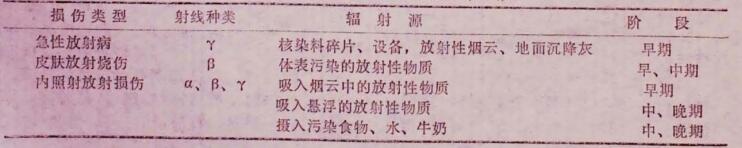 损伤类型 射线种类 辐射源 阶段
急性放射病 γ 核染料碎片、设备，放射性烟云、地面沉降灰 早期
皮肤放射烧伤 β 体表污染的放射性物质 早、中期
内照射放射损伤 α、β、γ 吸入烟云中的放射性物质 早期
吸入悬浮的放射性物质 中、晚期
摄入污染食物、水、牛奶 中、晚期